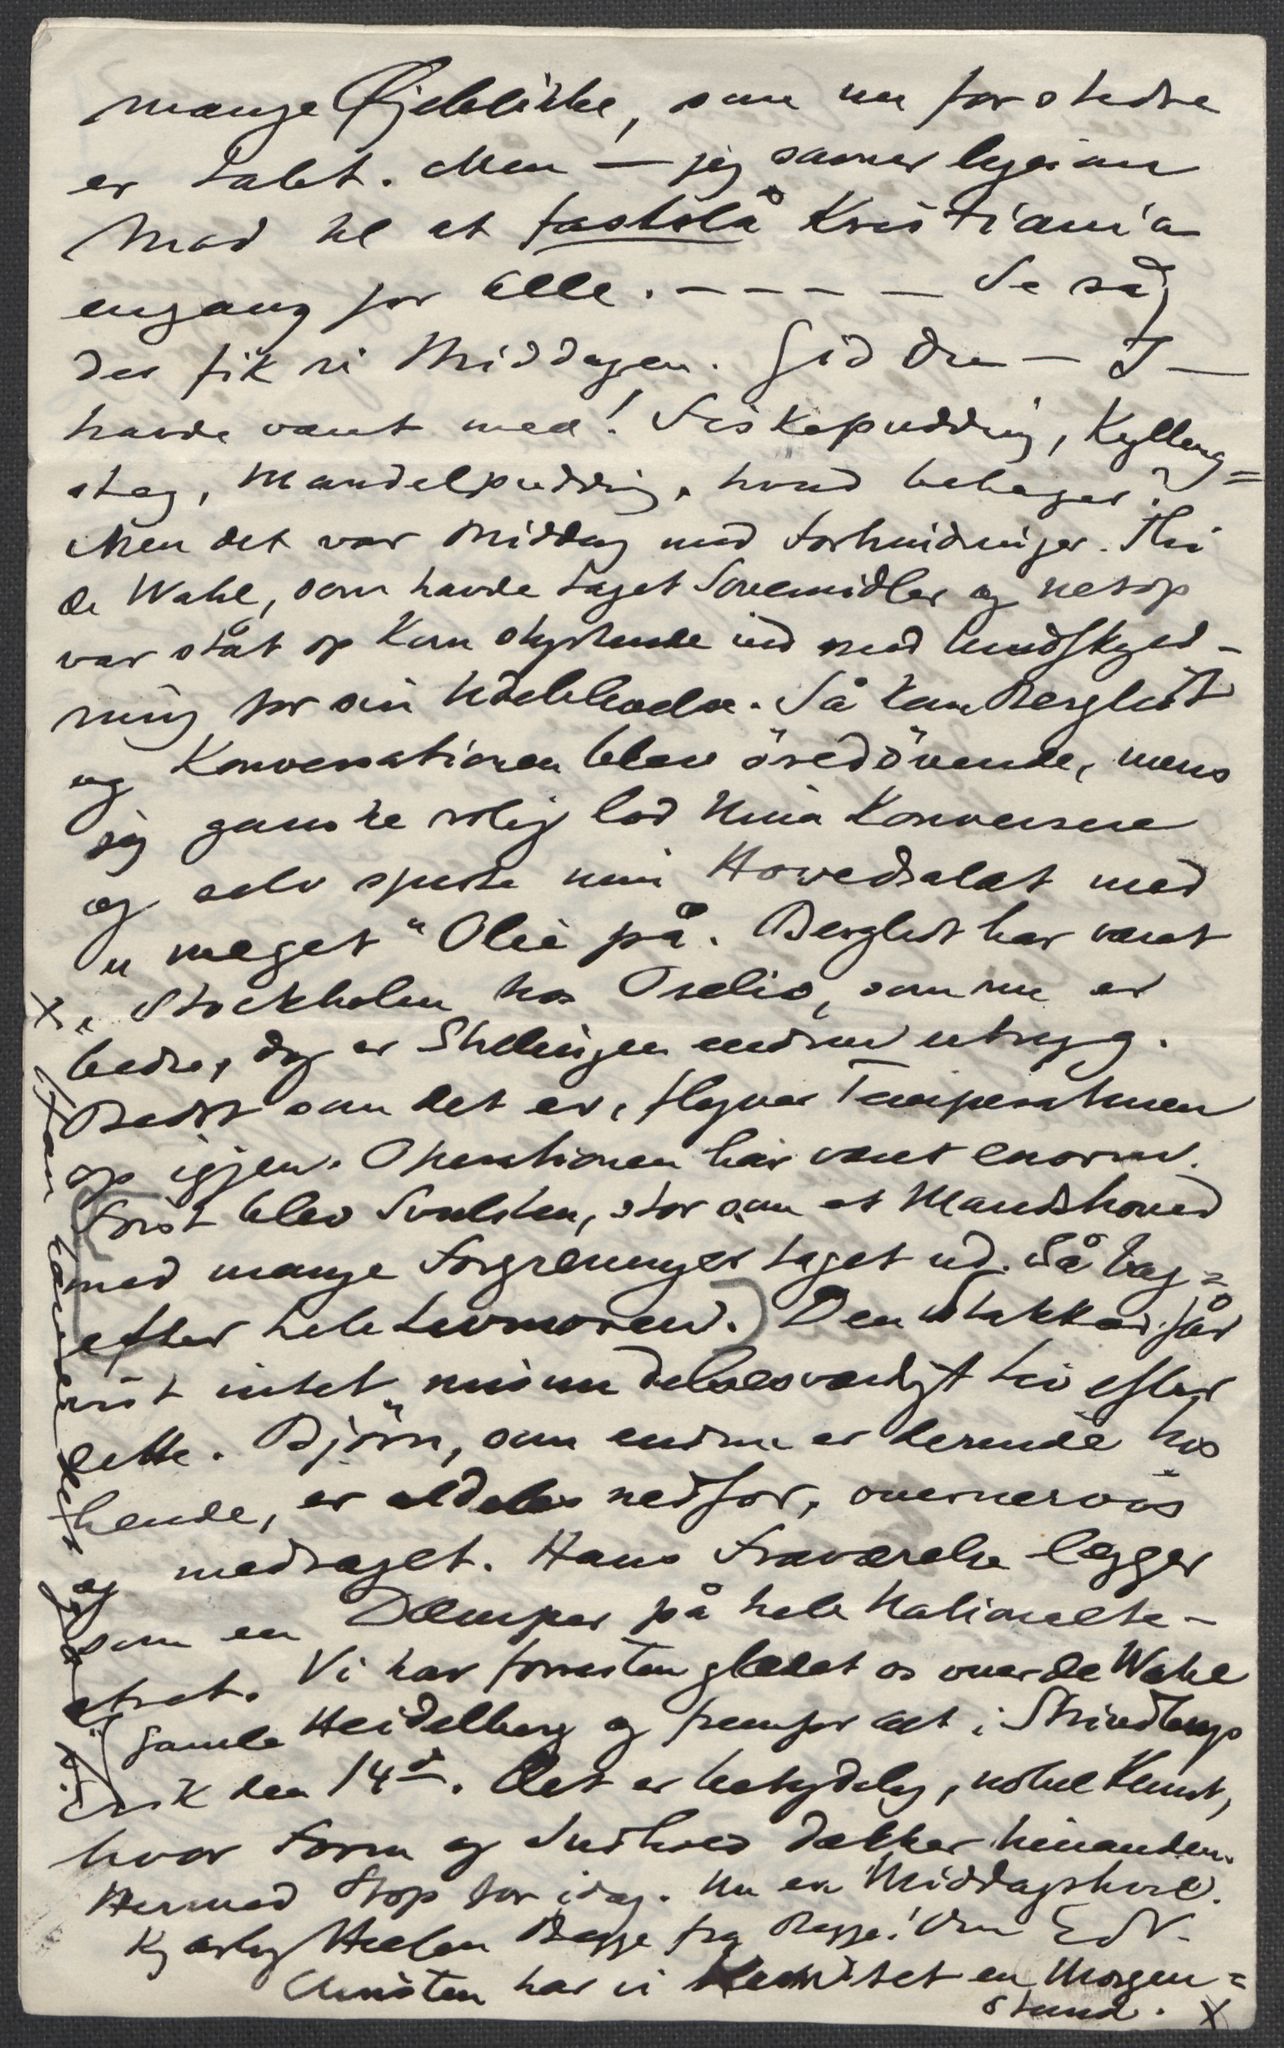 mange Øjeblikke, som nu for stedse
er tabt. Men – jeg samler ligesom
Mod til at fastslå Kristiania
engang for alle. – – – – – Se så,
der fik vi Middagen. Gid Du – I –
havde været med! Fiskepudding, Kylling=
steg, Mandelpudding, hvad behager?
Men det var Middag med Forhindringer. Thi
de Wahl, som havde taget Sovemidler og netop
var stået op kom styrtende ind med Undskyld-
ning for sin Udeblivelse. Så kom Bergliot
og Konversationen blev öredövende, mens
jeg ganske rolig lod Nina konversere
og selv spiste min Hovedsalat med
„meget" Olie på. Bergliot har været
i Stockholm hos Oselio, som nu er
bedre, dog er Stillingen endnu utryg.
Bedst som det er, flyver Temperaturen
op igjen. Operationen har været enorm.
Först blev Svulsten, stor som et Mandshoved
med mange Forgreninger taget ud. Så bag=
efter hele Livmoren. Den Stakkar får
vist intet misundelsesværdigt Liv efter
dette. Björn, som endnu er derinde hos
hende, er aldeles nedfor, overnervös
og medtaget. Hans Fraværelse lægger
som en Dæmper på hele Nationalte-
atret. Vi har forresten glædet os over de Wahl
i Gamle Heidelberg og fremfor alt i Strindbergs
Erik den 14de. Det er betydelig, nobel Kunst,
hvor Form og Indhold dækker hinanden.
Hermed Stop for idag. Nu en Middagshvil.
Kjærlig Hilsen Begge fra Begge! Din EdvG.
Christen har vi kun havt en Morgen=
stund. x
x Han